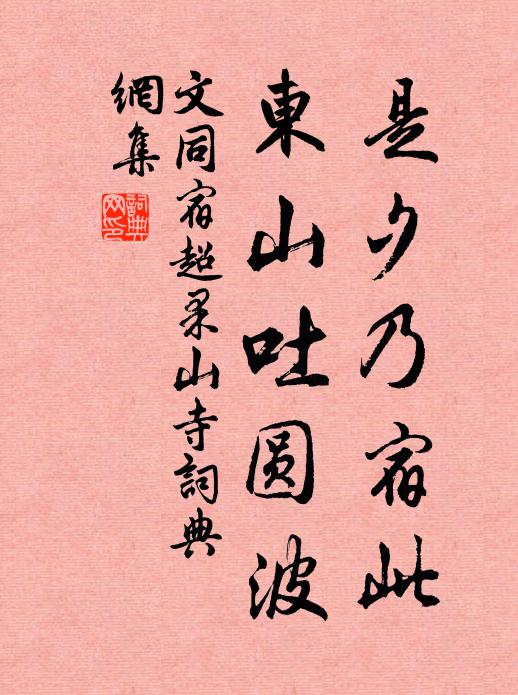 是夕乃宿此
東山吐圆波
文同宿超果山寺詞典
網集
詞典网印